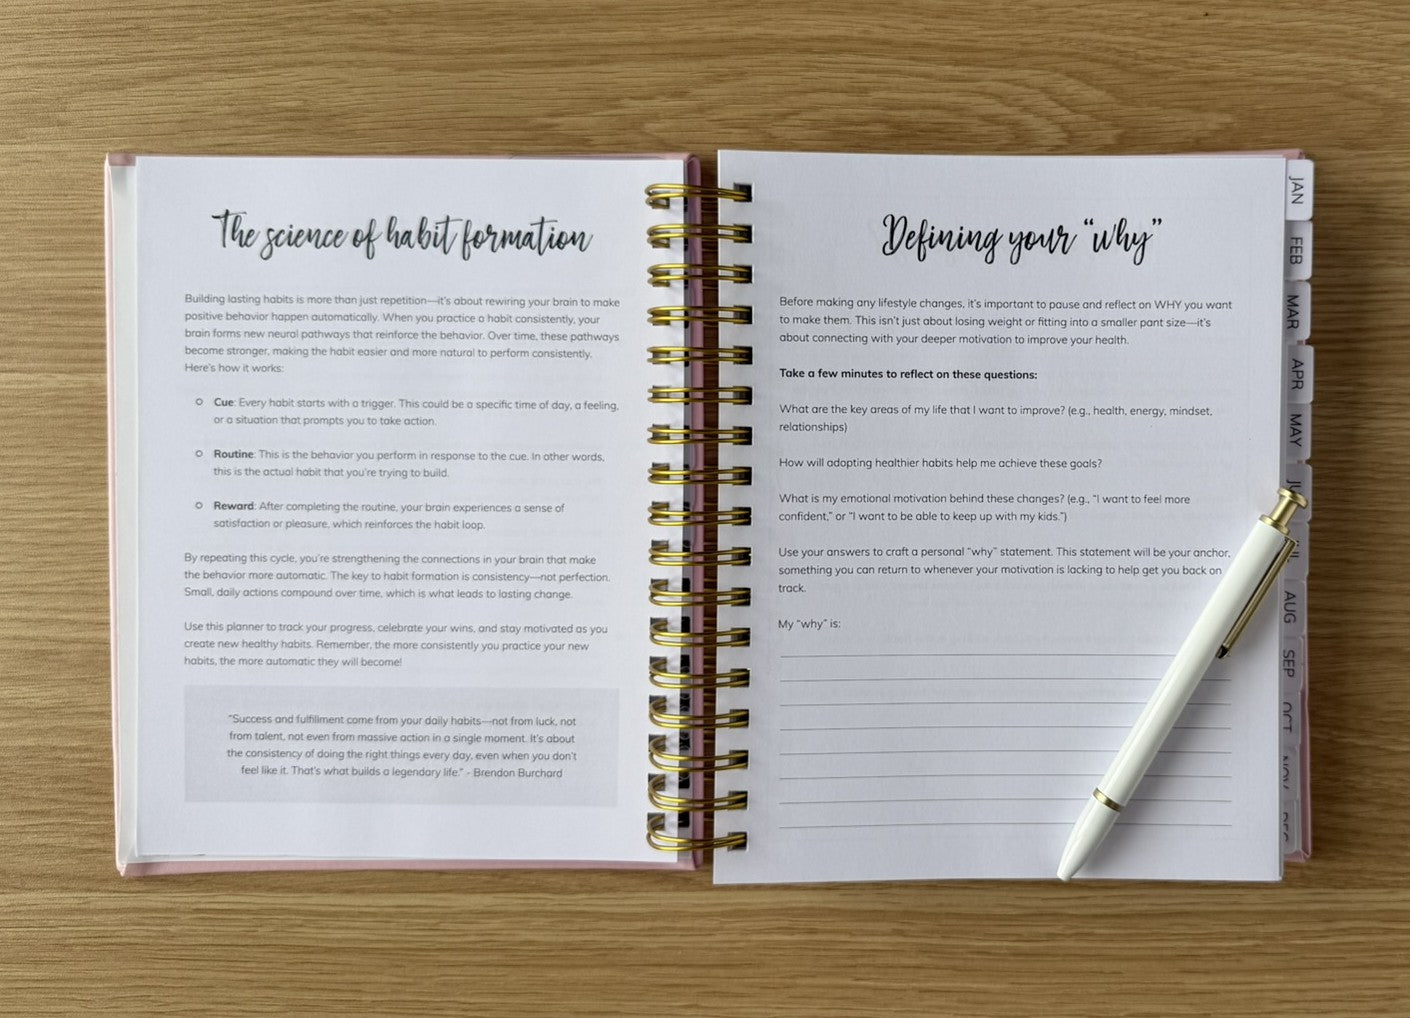 The science of habit formation
Building lasting habits is more than just repetition—it's about rewiring your brain to make
positive behavior happen automatically. When you practice a habit consistently, your
brain forms new neural pathways that reinforce the behavior. Over time, these pathways
become stronger, making the habit easier and more natural to perform consistently.
Here's how it works:
Cue: Every habit starts with a trigger. This could be a specific time of day, a feeling,
or a situation that prompts you to take action.
Routine: This is the behavior you perform in response to the cue. In other words,
this is the actual habit that you're trying to build.
Reward: After completing the routine, your brain experiences a sense of
satisfaction or pleasure, which reinforces the habit loop.
By repeating this cycle, you're strengthening the connections in your brain that make
the behavior more automatic. The key to habit formation is consistency—not perfection.
Small, daily actions compound over time, which is what leads to lasting change.
Use this planner to track your progress, celebrate your wins, and stay motivated as you
create new healthy habits. Remember, the more consistently you practice your new
habits, the more automatic they will become!
"Success and fulfillment come from your daily habits—not from luck, not
from talent, not even from massive action in a single moment. It's about
the consistency of doing the right things every day, even when you don't
feel like it. That's what builds a legendary life." - Brendon Burchard
Defining your "why"
Before making any lifestyle changes, it's important to pause and reflect on WHY you want
to make them. This isn't just about losing weight or fitting into a smaller pant size—it's
about connecting with your deeper motivation to improve your health.
Take a few minutes to reflect on these questions:
What are the key areas of my life that I want to improve? (e.g., health, energy, mindset,
relationships)
How will adopting healthier habits help me achieve these goals?
What is my emotional motivation behind these changes? (e.g., "I want to feel more
confident," or "I want to be able to keep up with my kids.")
Use your answers to craft a personal "why" statement. This statement will be your anchor,
something you can return to whenever your motivation is lacking to help get you back on
track.
My "why" is:
JAN
FEB
MAR
APR
MAY
AUG
SEP
OCT
NOV
DEC